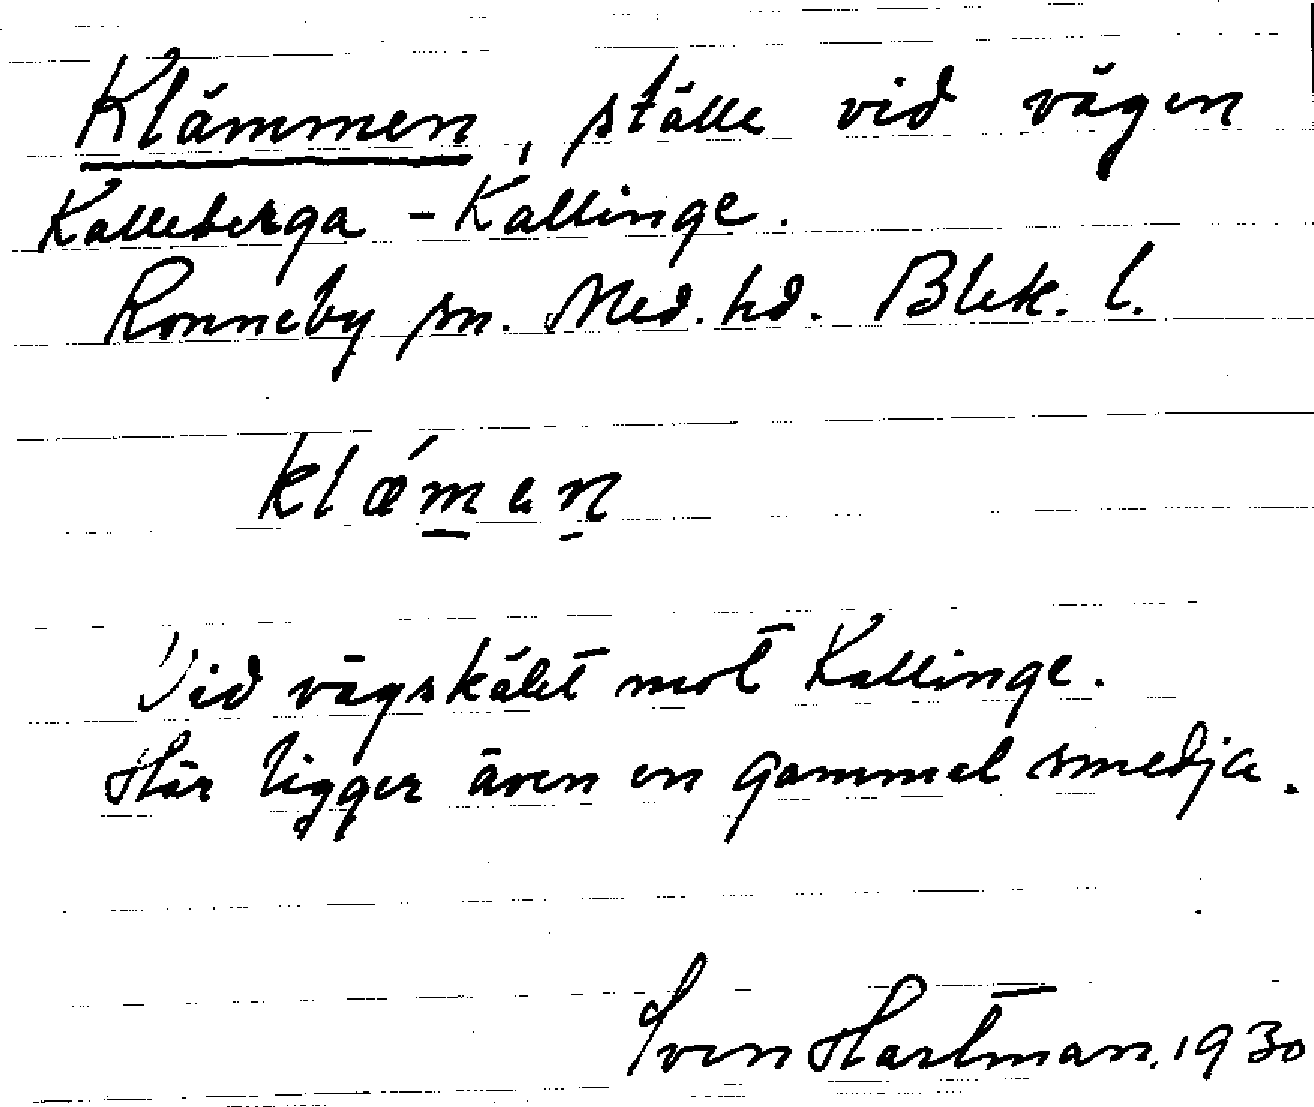 Klämmen, ställe vid vägen
Kalleberga - Kallinge.
Ronneby sn. Med. hd. Blek. l.
klǽmen
Vid vägskälet mot Kallinge.
Här ligger även en gammal smedja.
Sven Hartman. 1930